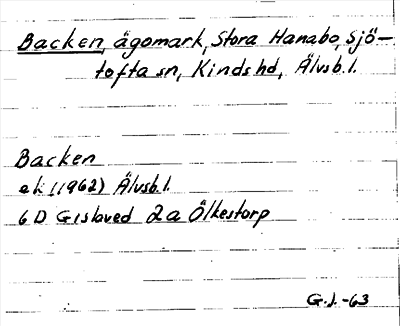 Backen, ägomark, Stora Hanabo, Sjö-
tofta sn, Kinds hd, Älvsb.l.
Backen
ek (1962) Älvsb.l.
6 D Gislaved 2a Ölkestorp
G.J.-63